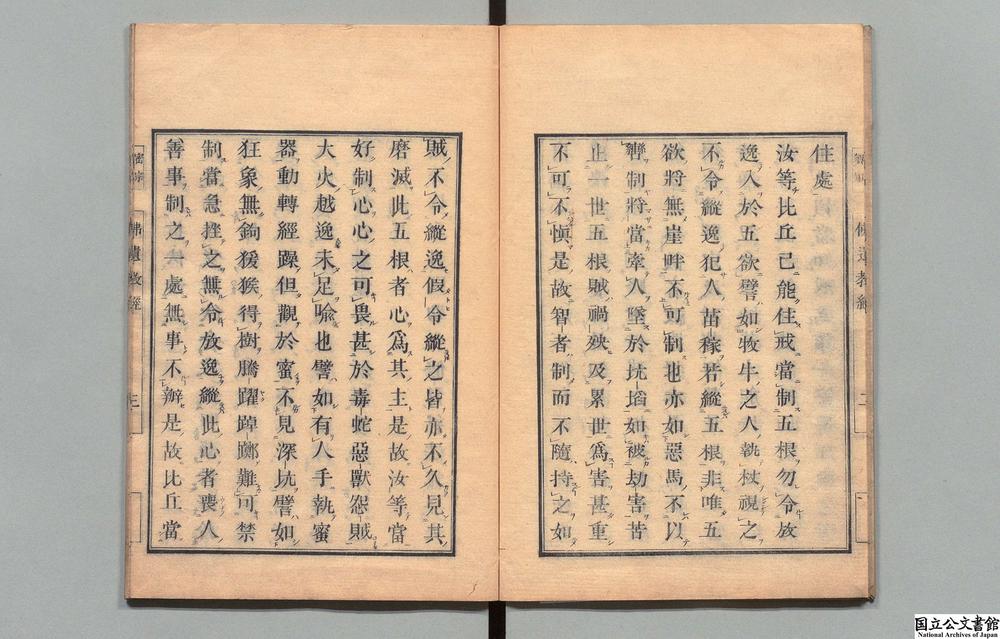 住處
汝等比丘已能住戒當制五根勿令放
逸入於五欲譬如牧牛之人執杖視之
不令縱逸犯人苗稼若縱五根非唯五
欲將無崖畔不可制也亦如惡馬不以
轡制將當牽人墜於坑埳如被劫害苦
止一世五根賊禍殃及累世為害甚重
不可不愼是故智者制而不隨持之如
賊不令縱逸假令縱之皆亦不久見其
磨滅此五根者心為其主是故汝等當
好制心心之可畏甚於毒蛇惡獸怨賊
大火越逸未足喩也譬如有人手執蜜
器動轉輕躁但觀於蜜不見深坑譬如
狂象無鉤猨猴得樹騰躍踔躑難可禁
制當急挫之無令放逸縱此心者喪人
善事制之一處無事不辦是故比丘當
佛遺教經
三
国立公文書館
National Archives of Japan